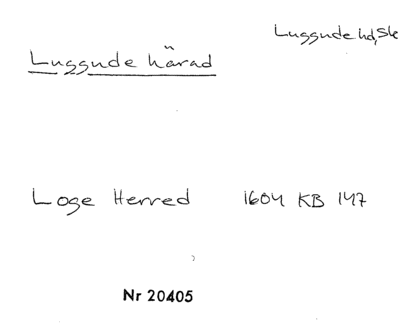 Luggude hd, Sk
Luggude härad
Loge Herred 1604 KB 147
Nr 20405